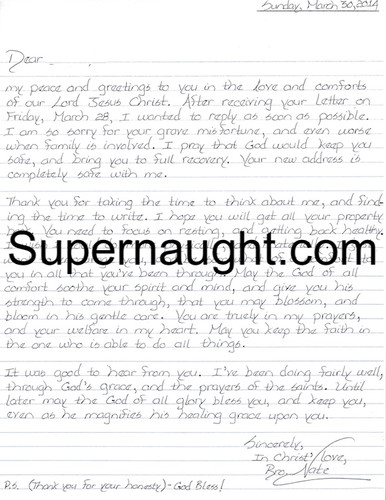 Sunday, March 30, 2014
Dear
my peace and greetings to you in the love and comforts
of our Lord Jesus Christ. After receiving your letter on
Friday, March 28, I wanted to reply as soon as possible.
I am so sorry for your grave misfortune, and even worse
when family is involved. I pray that God would keep you
safe, and bring you to full recovery. Your new address is
completely safe with me.
Thank you for taking the time to think about me, and find-
ing the time to write. I hope you will get all your property
You need to focus on resting, and getting back healthy.
Supernaught.com
you in all that you've been through. May the God of all
comfort soothe your spirit and mind, and give you his
strength to come through, that you may blossom, and
bloom in his gentle care. You are truely in my prayers,
and your welfare in my heart. May you keep the faith in
the one who is able to do all things.
It was good to hear from you. I've been doing fairly well,
through God's grace, and the prayers of the saints. Until
later may the God of all glory bless you, and keep you,
even as he magnifies his healing grace upon you.
Sincerely,
In Christ' love,
Bro. Nate
P.S. (Thank you for your honesty)-God Bless!